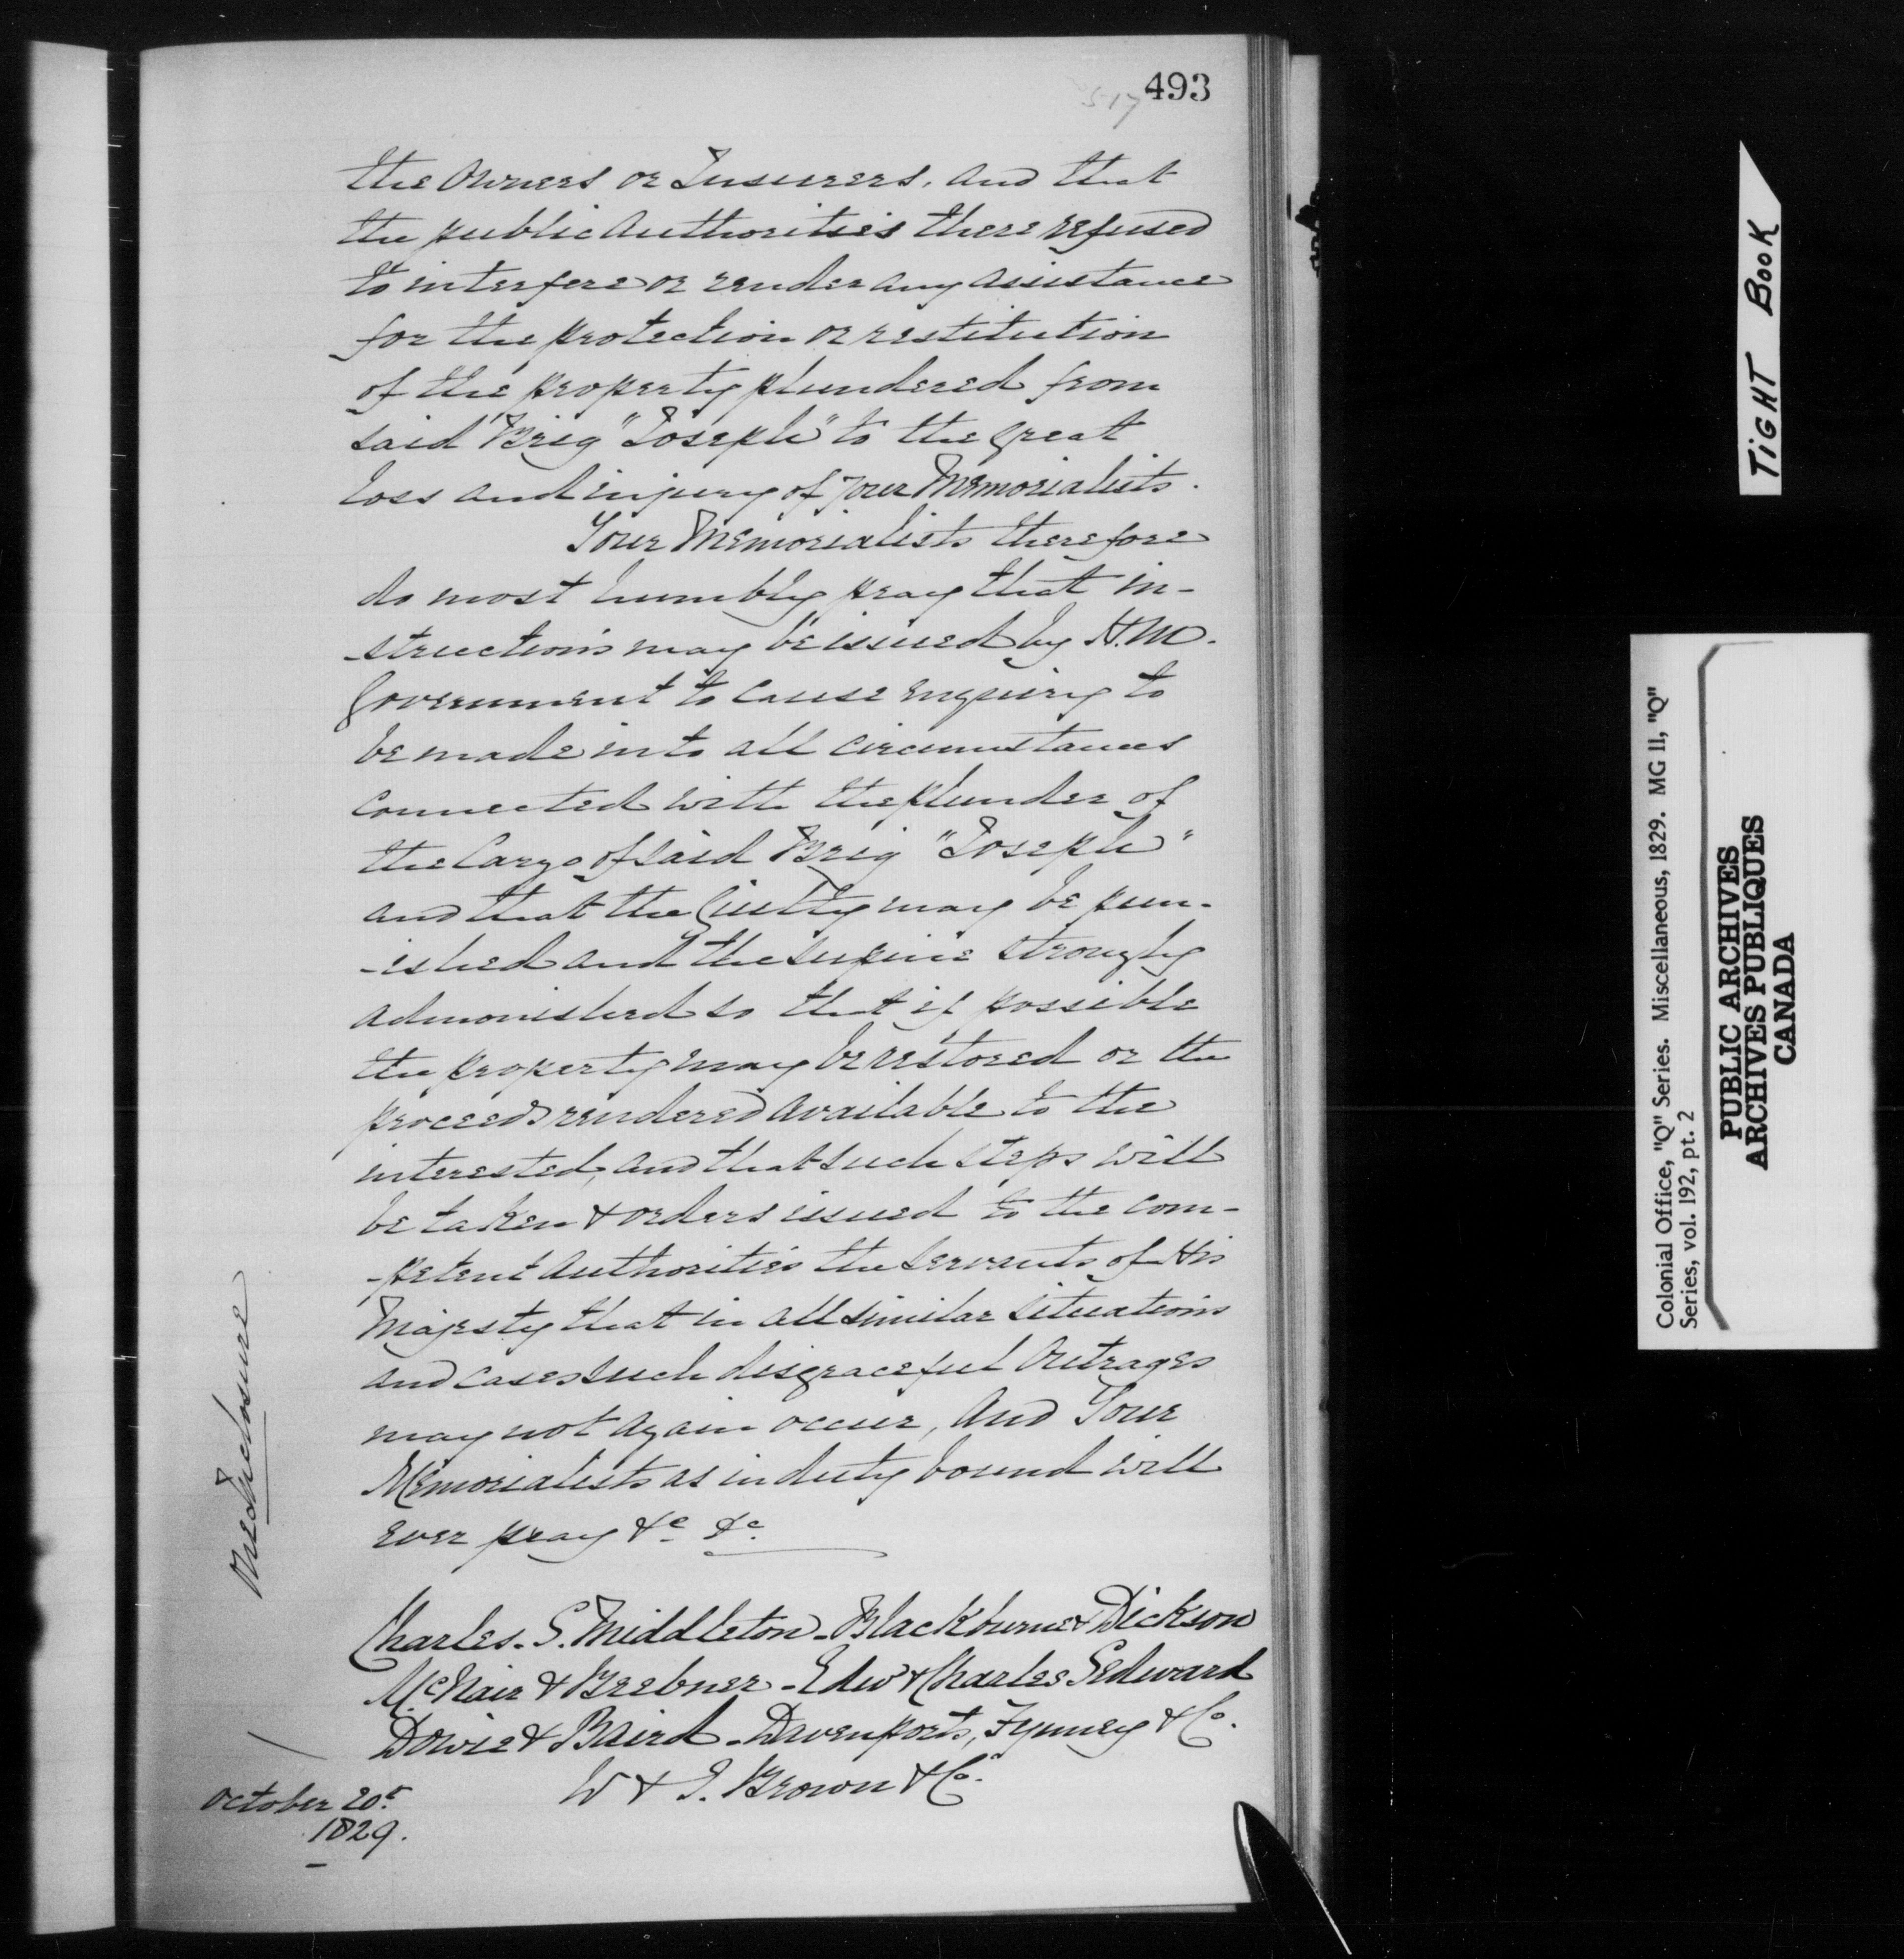 493
517
the Owners or Insurers, and that
the public Authorities there refused
to interfere or render any assistance
for the protection or restitution
of the property plundered from
said Brig "Joseph" to the great
loss and injury of your Memorialists.
Your Memorialists therefore
do most humbly pray that in-
-structions may be issued by H.M.
Government to cause enquiry to
be made into all circumstances
connected with the plunder of
the Cargo of said Brig "Joseph"
and that the Guilty may be pun-
-ished and the supine strongly
admonished so that if possible
the property may be restored or the
proceeds rendered available to the
interested, and that such steps will
be taken & orders issued to the com-
-petent Authorities the Servants of His
Majesty that in all similar situations
and cases such disgraceful Outrages
may not again occur, And Your
Memorialists as in duty bound will
ever pray &c &c.
One Inclosure
Charles. S. Middleton - Blackburne & Dickson
McNair & Brebner - Edwd & Charles Sedward
Dowie & Baird - Davenports, Fynney & Co.
W & J. Brown & Co.
October 20t
1829.
TIGHT BOOK
Colonial Office, "Q" Series. Miscellaneous, 1829. MG 11, "Q"
Series, vol. 192, pt. 2
PUBLIC ARCHIVES
ARCHIVES PUBLIQUES
CANADA